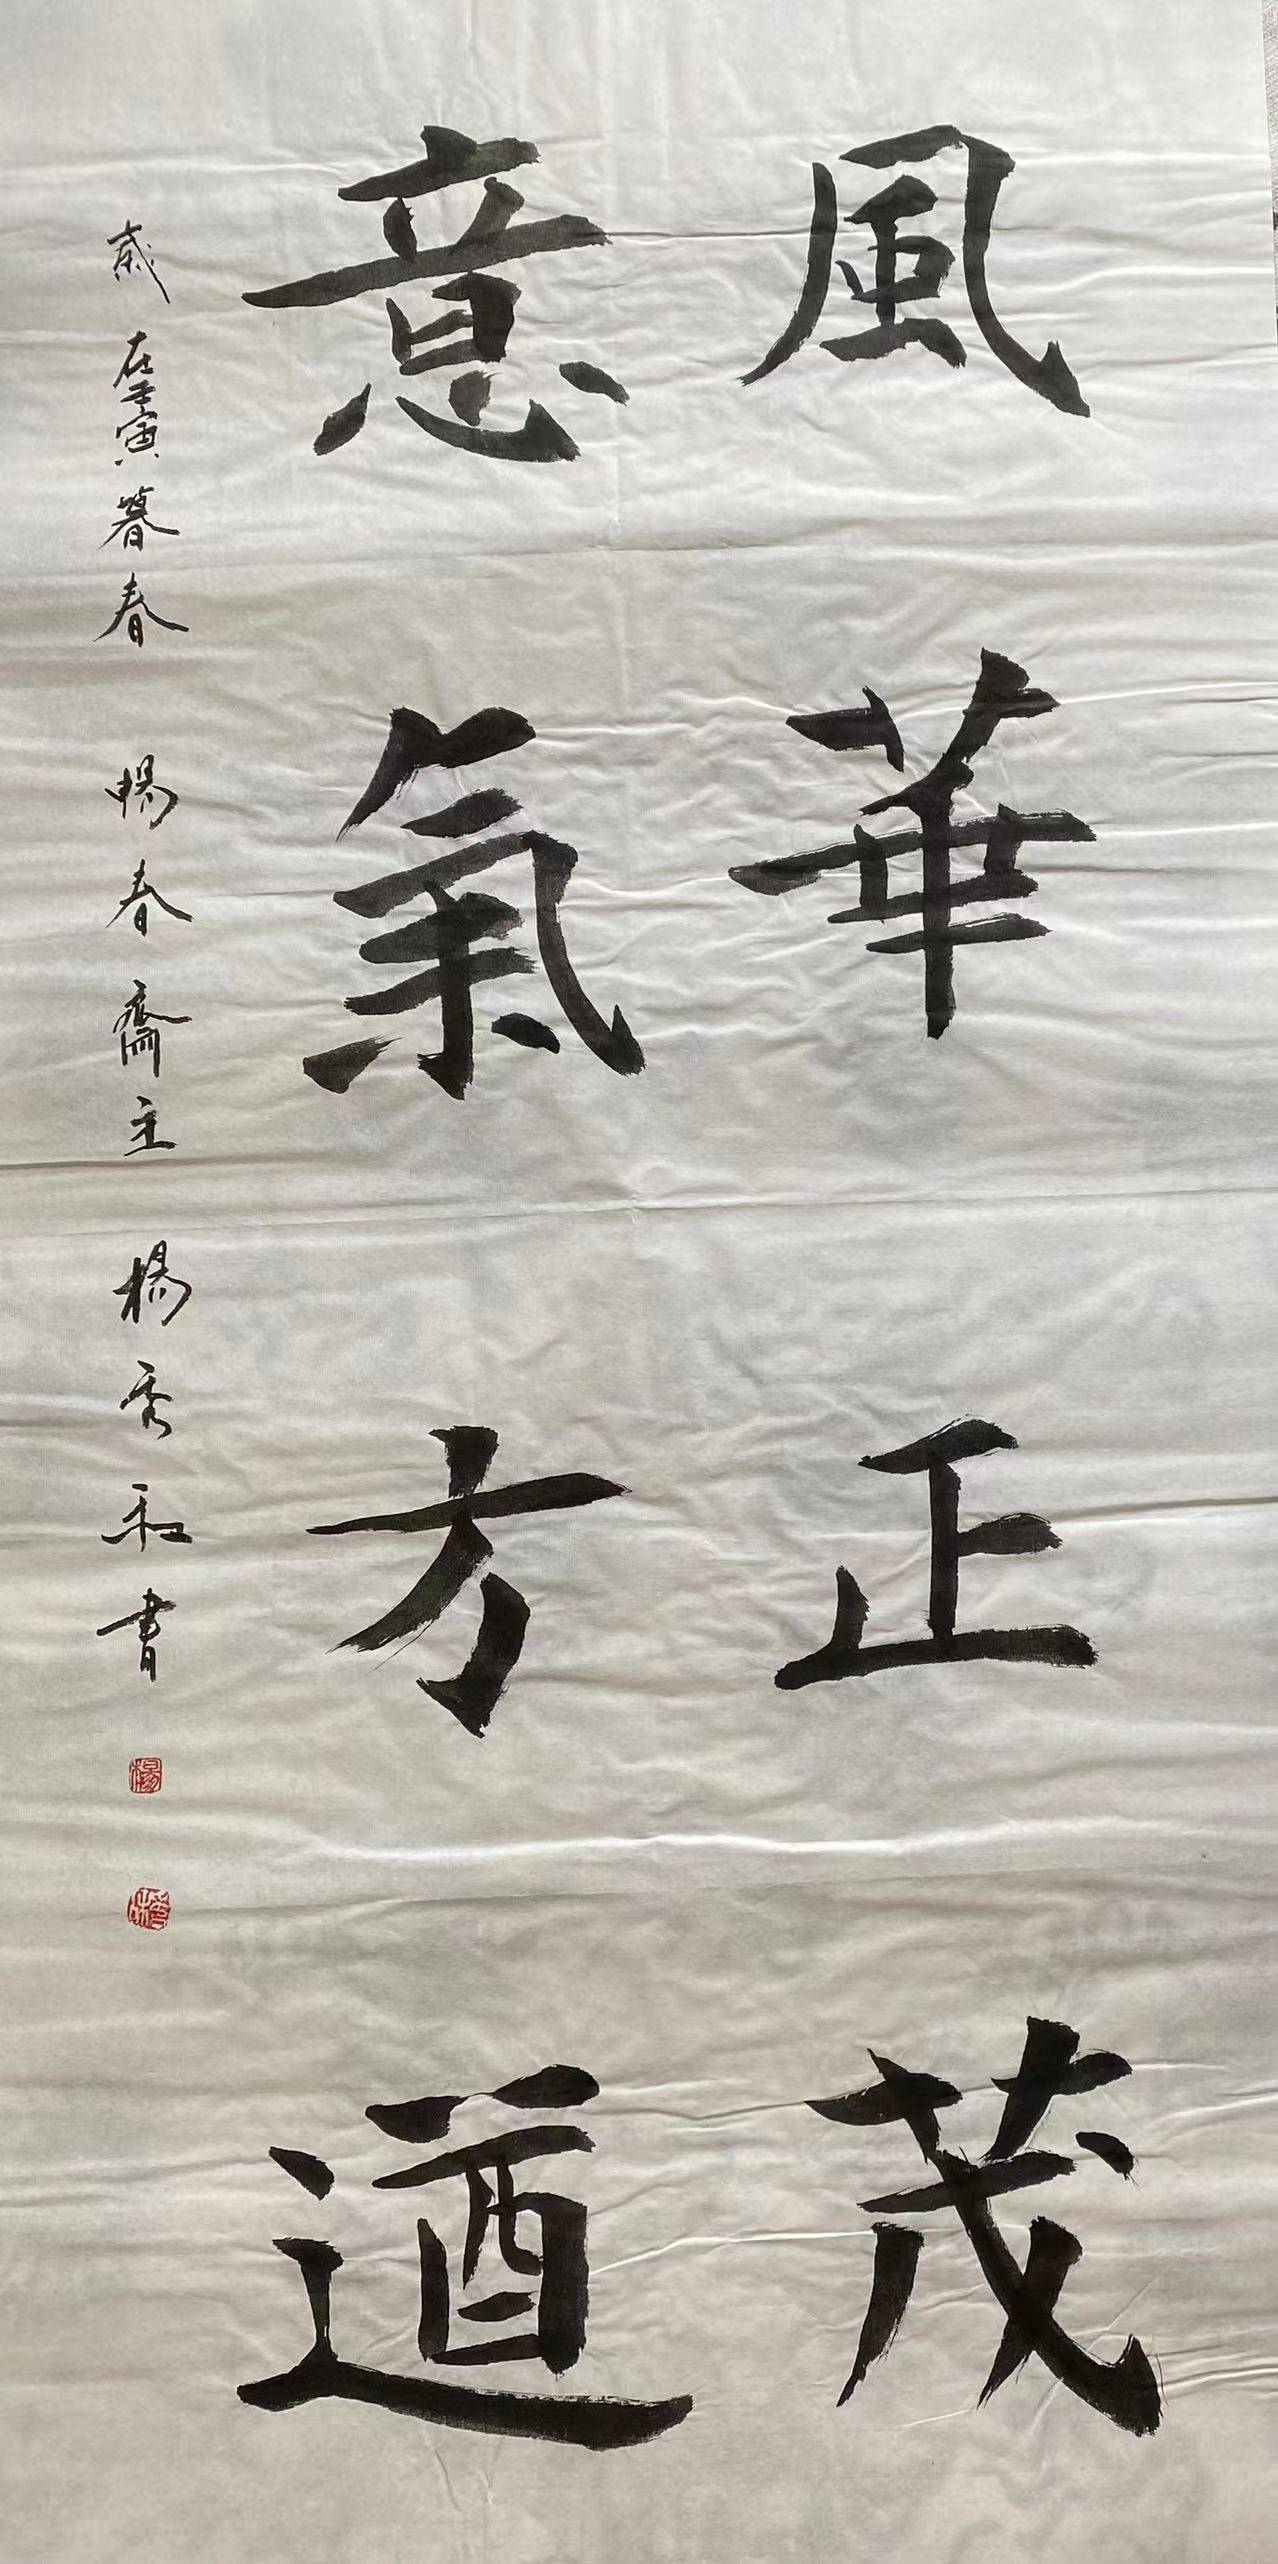 風華正茂
意氣方遒
歲在壬寅暮春 暢春齋主 楊秀和書
楊